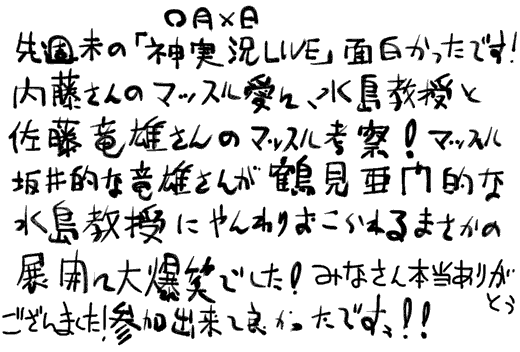 〇月×日
先週末の「神実況LIVE」面白かったです!
内藤さんのマッスル愛に、水島教授と
佐藤竜雄さんのマッスル考察!マッスル
坂井的な竜雄さんが鶴見亜門的な
水島教授にやんわりおこられるまさかの
展開に大爆笑でした!みなさん本当ありがとう
ございました!参加出来て良かったですぅ!!